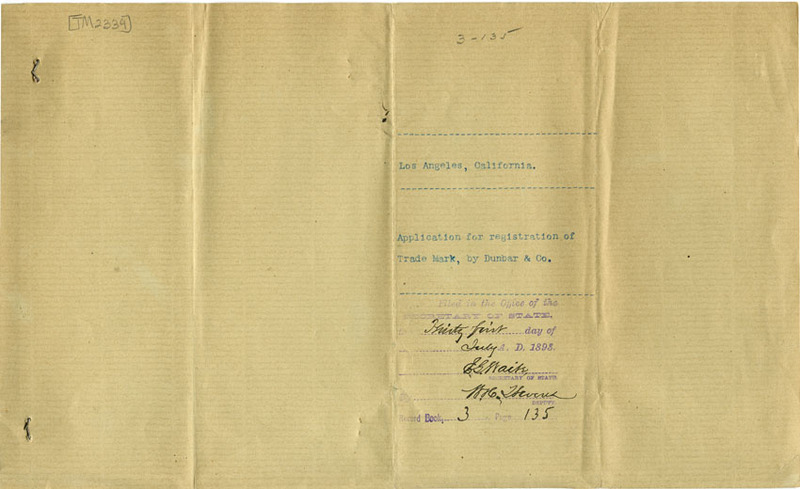 [TM2334]
3-135
Los Angeles, California.
Application for registration of
Trade Mark, by Dunbar & Co.
Filed in the Office of the
SECRETARY OF STATE.
Thirty first day of
July A. D. 1895.
E. G. Waite
SECRETARY OF STATE
W. H.
DEPUTY
Record Book, 3 Page 135